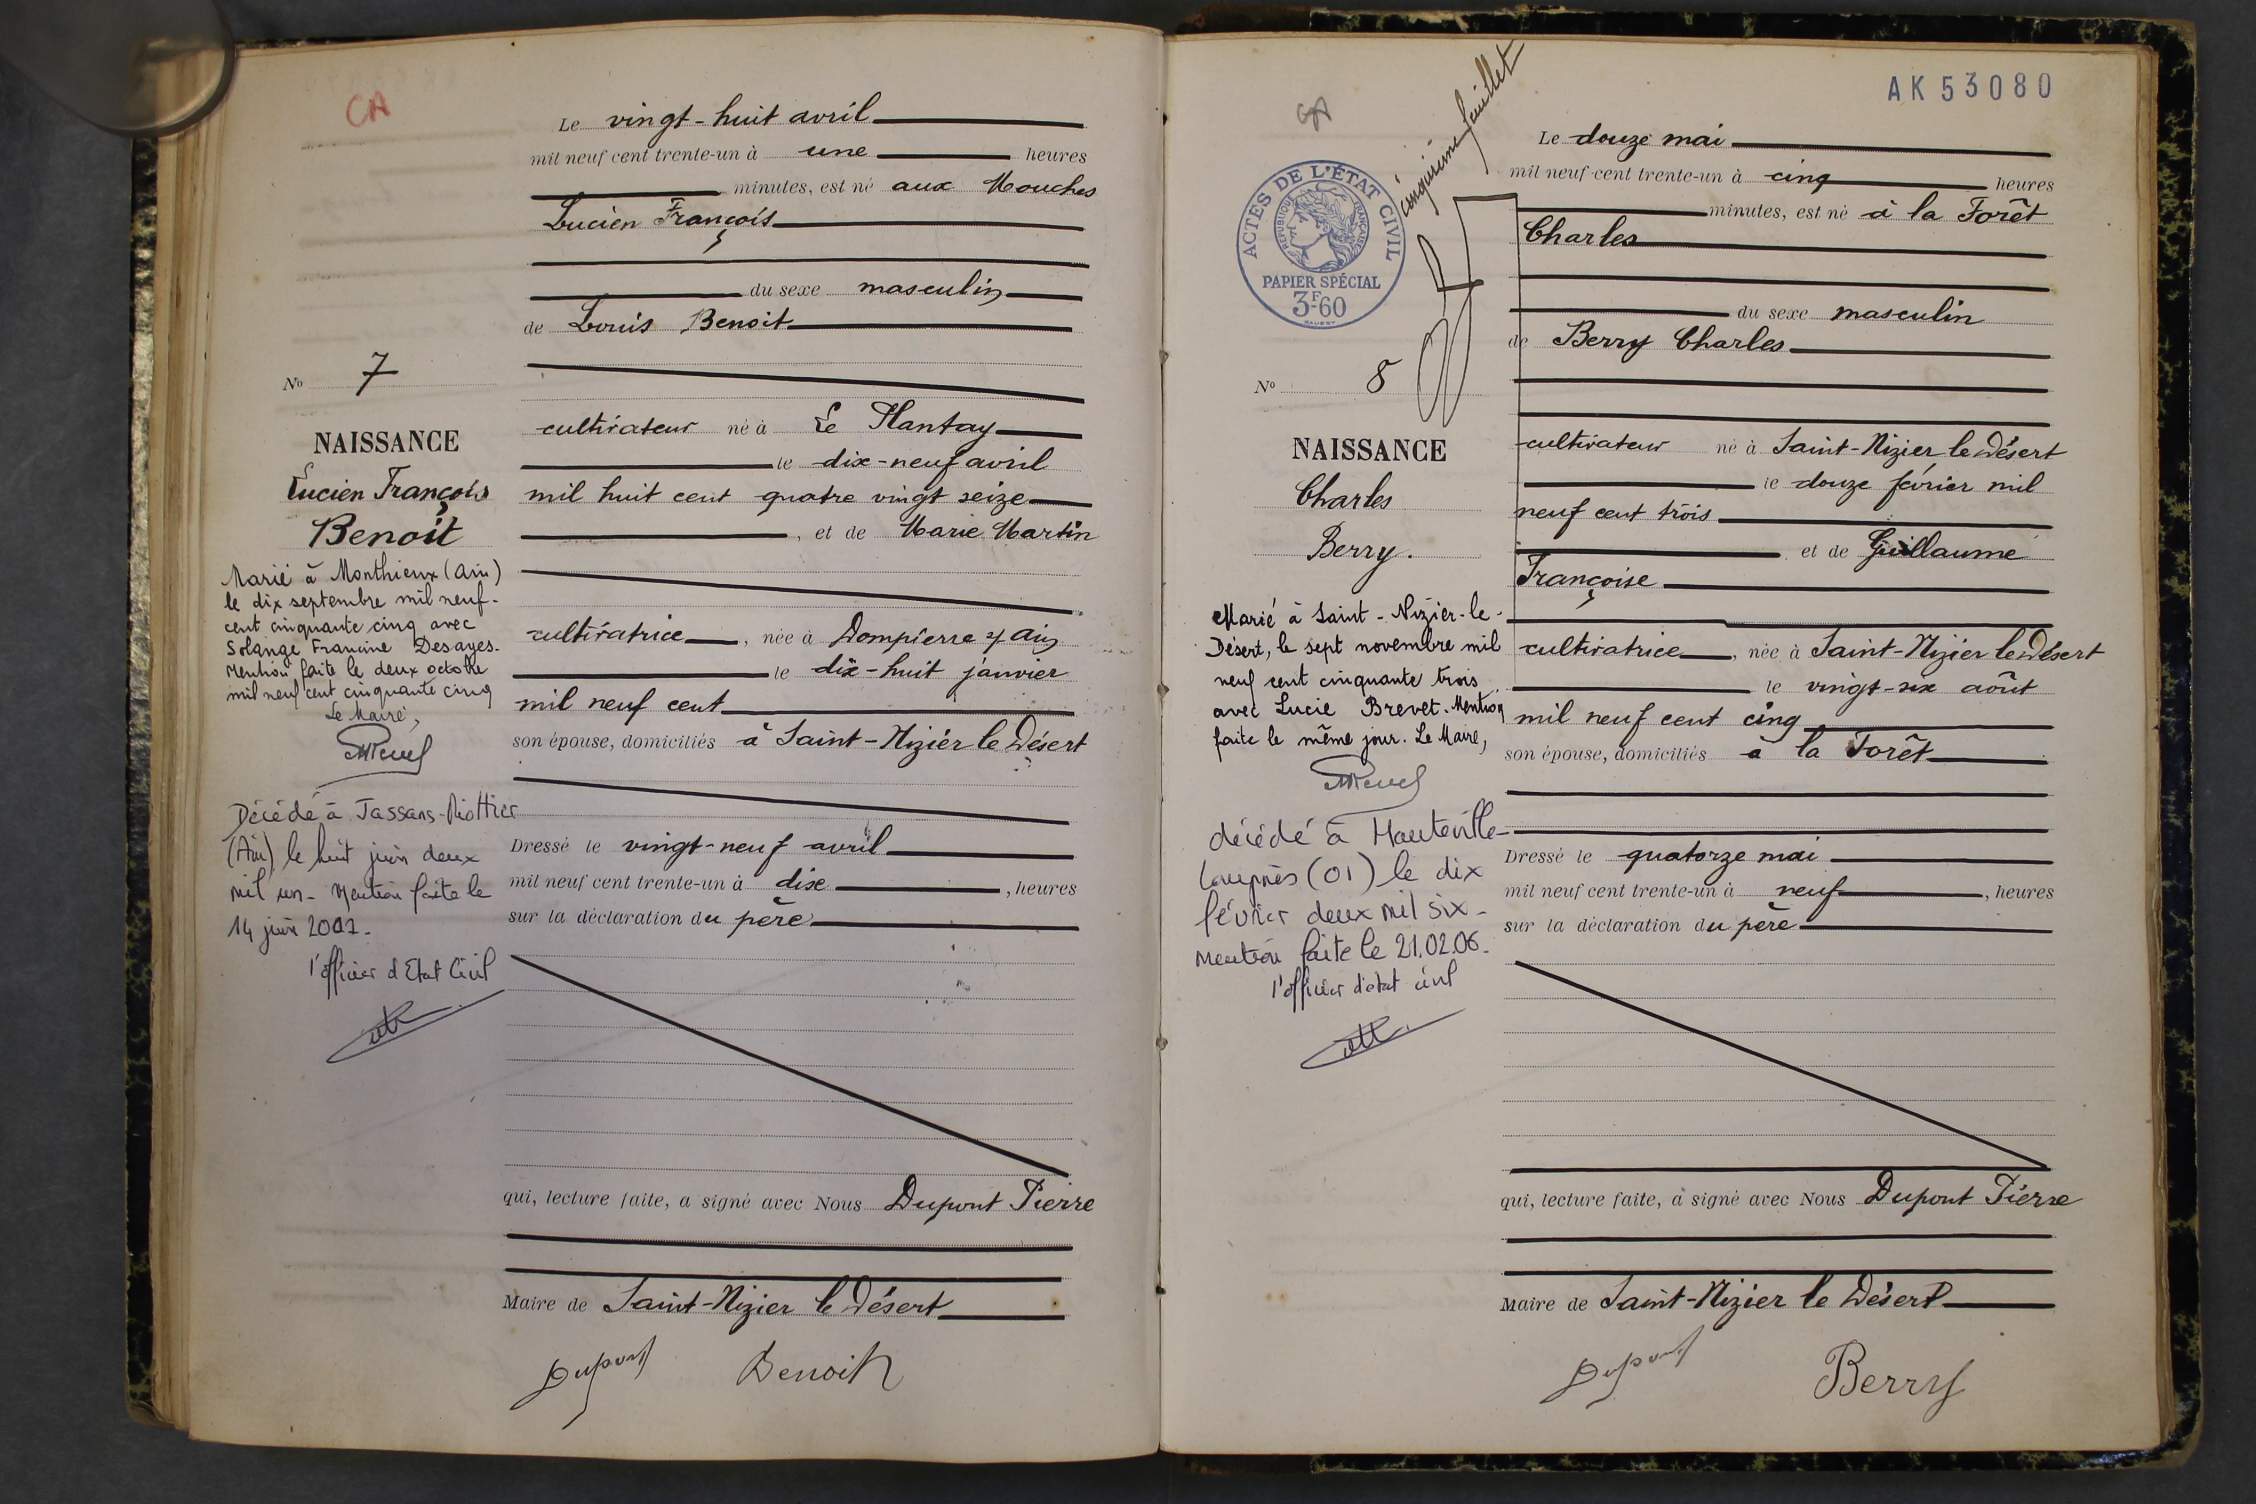 CA
Le vingt-huit avril
mil neuf cent trente-un à une heures
minutes, est né aux Mouches
Lucien François
du sexe masculin
de Louis Benoit
No 7
NAISSANCE
Lucien François
Benoit
cultivateur né à Le Plantay
le dix-neuf avril
mil huit cent quatre vingt seize
, et de Marie Martin
cultivatrice, née à Dompierre s/ Ain
le dix-huit janvier
mil neuf cent
son épouse, domiciliés à Saint-Nizier le Désert
Dressé le vingt-neuf avril
mil neuf cent trente-un à dix, heures
sur la déclaration du père
qui, lecture faite, a signé avec Nous Dupont Pierre
Maire de Saint-Nizier le Désert
Dupont Benoit
Marié à Monthieux (Ain)
le dix septembre mil neuf-
cent cinquante cinq avec
Solange Francine Desayes.
Mention faite le deux octobre
mil neuf cent cinquante cinq
Le Maire,
Décédé à Jassans-Riottier
(Ain) le huit juin deux
mil un - Mention faite le
14 juin 2001.
l'officier d'Etat Civil
CA
cinquième feuillet
AK53080
ACTES DE L'ÉTAT CIVIL
RÉPUBLIQUE FRANÇAISE
PAPIER SPÉCIAL
3F60
Le douze mai
mil neuf cent trente-un à cinq heures
minutes, est né à la Forêt
Charles
du sexe masculin
de Berry Charles
No 8
NAISSANCE
Charles
Berry.
cultivateur né à Saint-Nizier le Désert
le douze février mil
neuf cent trois
et de Guillaume
Françoise
cultivatrice, née à Saint-Nizier le Désert
le vingt-six août
mil neuf cent cinq
son épouse, domiciliés à la Forêt
Dressé le quatorze mai
mil neuf cent trente-un à neuf, heures
sur la déclaration du père
qui, lecture faite, a signé avec Nous Dupont Pierre
Maire de Saint-Nizier le Désert
Dupont Berry
Marié à Saint-Nizier-le-
Désert, le sept novembre mil
neuf cent cinquante trois
avec Lucie Brevet. Mention
faite le même jour. Le Maire,
décédé à Hauteville-
Lompnès (01) le dix
février deux mil six -
Mention faite le 21.02.06.
l'officier d'état civil